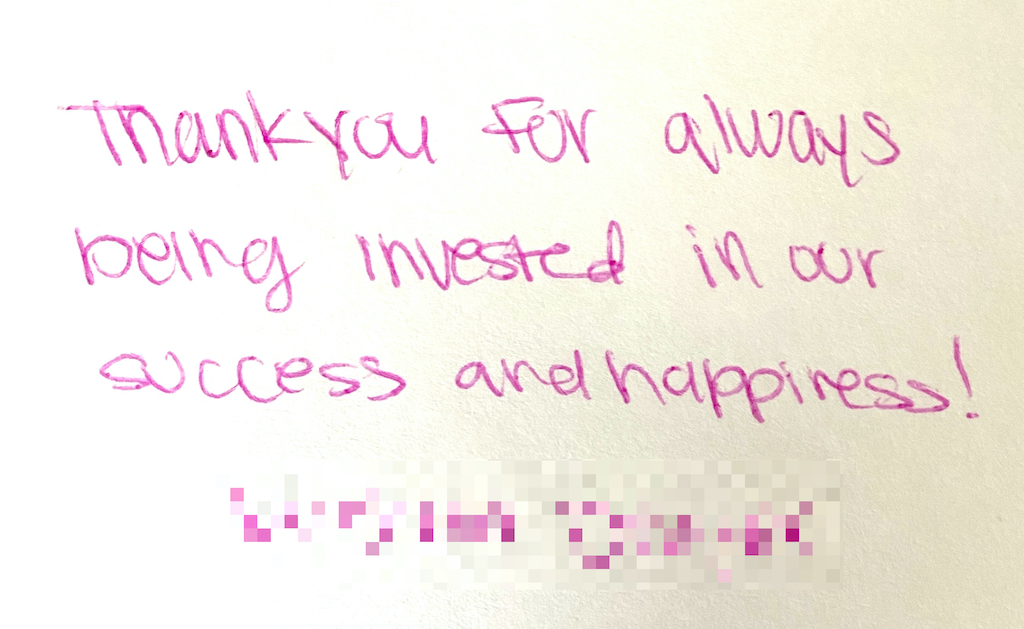 Thankyou For always
being invested in our
success and happiness!